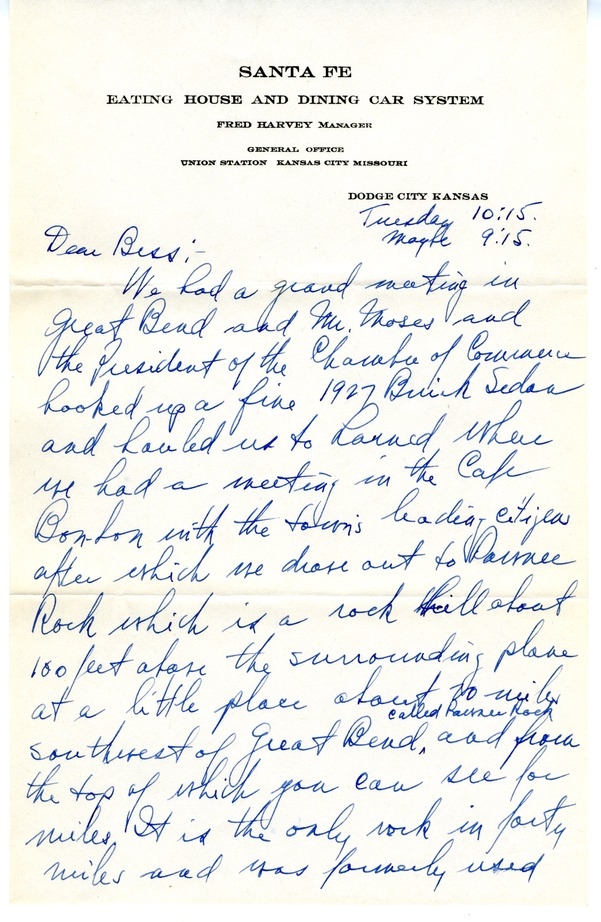 SANTA FE
EATING HOUSE AND DINING CAR SYSTEM
FRED HARVEY MANAGER
GENERAL OFFICE
UNION STATION KANSAS CITY MISSOURI
DODGE CITY KANSAS
Tuesday 10:15.
Maybe 9:15.
Dear Bess:-
We had a grand meeting in
Great Bend and Mr. Moses and
the President of the Chamber of Commerce
hooked up a fine 1927 Buick Sedan
and hauled us to Larned where
we had a meeting in the Cafe
Bon-Ton with the town's leading citizens
after which we drove out to Pawnee
Rock which is a rock hill about
100 feet above the surrounding plane
at a little place about 20 miles
called Pawnee Rock
southwest of Great Bend, and from
the top of which you can see for
miles. It is the only rock in forty
miles and was formerly used